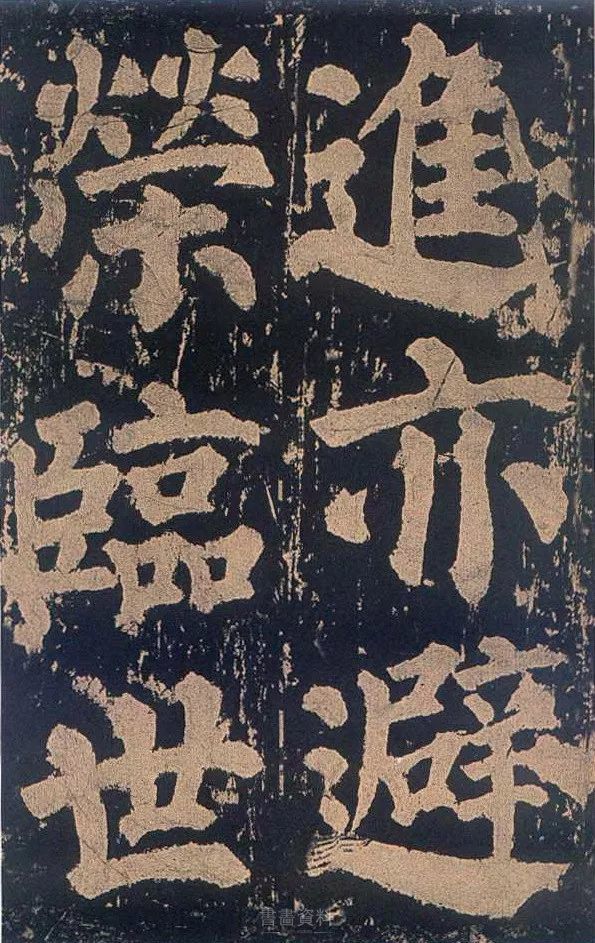 進亦避
榮臨世
書畫資料